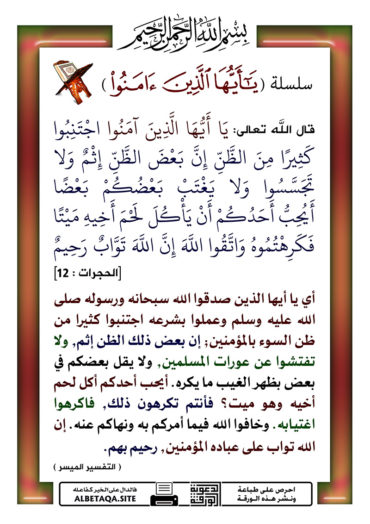 بسم الله الرحمن الرحيم
سلسلة ( يَـٰٓأَيُّهَا ٱلَّذِينَ ءَامَنُوا۟ )
قال الله تعالى: يَا أَيُّهَا الَّذِينَ آمَنُوا اجْتَنِبُوا
كَثِيرًا مِنَ الظَّنِّ إِنَّ بَعْضَ الظَّنِّ إِثْمٌ وَلَا
تَجَسَّسُوا وَلَا يَغْتَبْ بَعْضُكُمْ بَعْضًا
أَيُحِبُّ أَحَدُكُمْ أَنْ يَأْكُلَ لَحْمَ أَخِيهِ مَيْتًا
فَكَرِهْتُمُوهُ وَاتَّقُوا اللَّهَ إِنَّ اللَّهَ تَوَّابٌ رَحِيمٌ
[الحجرات : 12]
أي يا أيها الذين صدقوا الله سبحانه ورسوله صلى
الله عليه وسلم وعملوا بشرعه اجتنبوا كثيرا من
ظن السوء بالمؤمنين; إن بعض ذلك الظن إثم, ولا
تفتشوا عن عورات المسلمين, ولا يقل بعضكم في
بعض بظهر الغيب ما يكره. أيحب أحدكم أكل لحم
أخيه وهو ميت؟ فأنتم تكرهون ذلك, فاكرهوا
اغتيابه. وخافوا الله فيما أمركم به ونهاكم عنه. إن
الله تواب على عباده المؤمنين, رحيم بهم.
( التفسير الميسر )
احرص على طباعة
ونشر هذه الورقة
الدعوية
الورقة
فالدال على الخير كفاعله
ALBETAQA.SITE